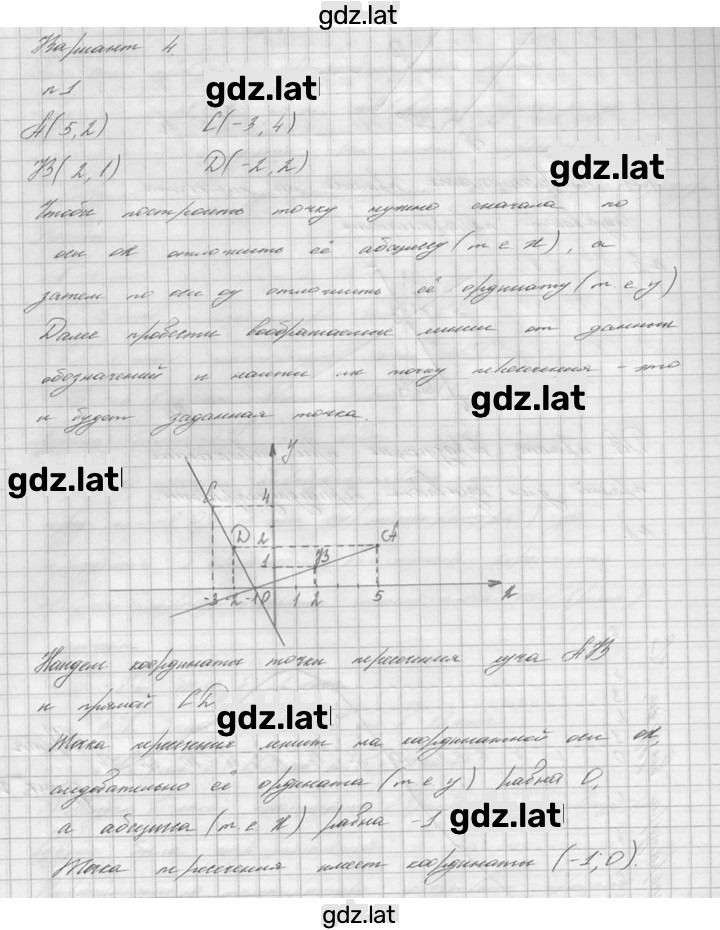 gdz.lat
Вариант 4.
gdz.lat
n 1.
A(5,2) C(-3,4)
gdz.lat
B(2,1) D(-2,2)
Чтобы построить точку нужно сначала по
оси ox отложить её абсциссу (т.е. x), а
затем по оси oy отложить её ординату (т.е. y)
Далее провести воображаемые линии от данных
обозначений и найти их точку пересечения - это
gdz.lat
и будет заданная точка.
y
gdz.lat
C 4
D 2 A
1 B
-3 -2 -1 0 1 2 5 x
Найдем координаты точки пересечения луча AB
и прямой CD
gdz.lat
Точка пересечения лежит на координатной оси ox,
следовательно её ордината (т.е. y) равна 0,
а абсцисса (т.е. x) равна -1
gdz.lat
Точка пересечения имеет координаты (-1;0).
gdz.lat